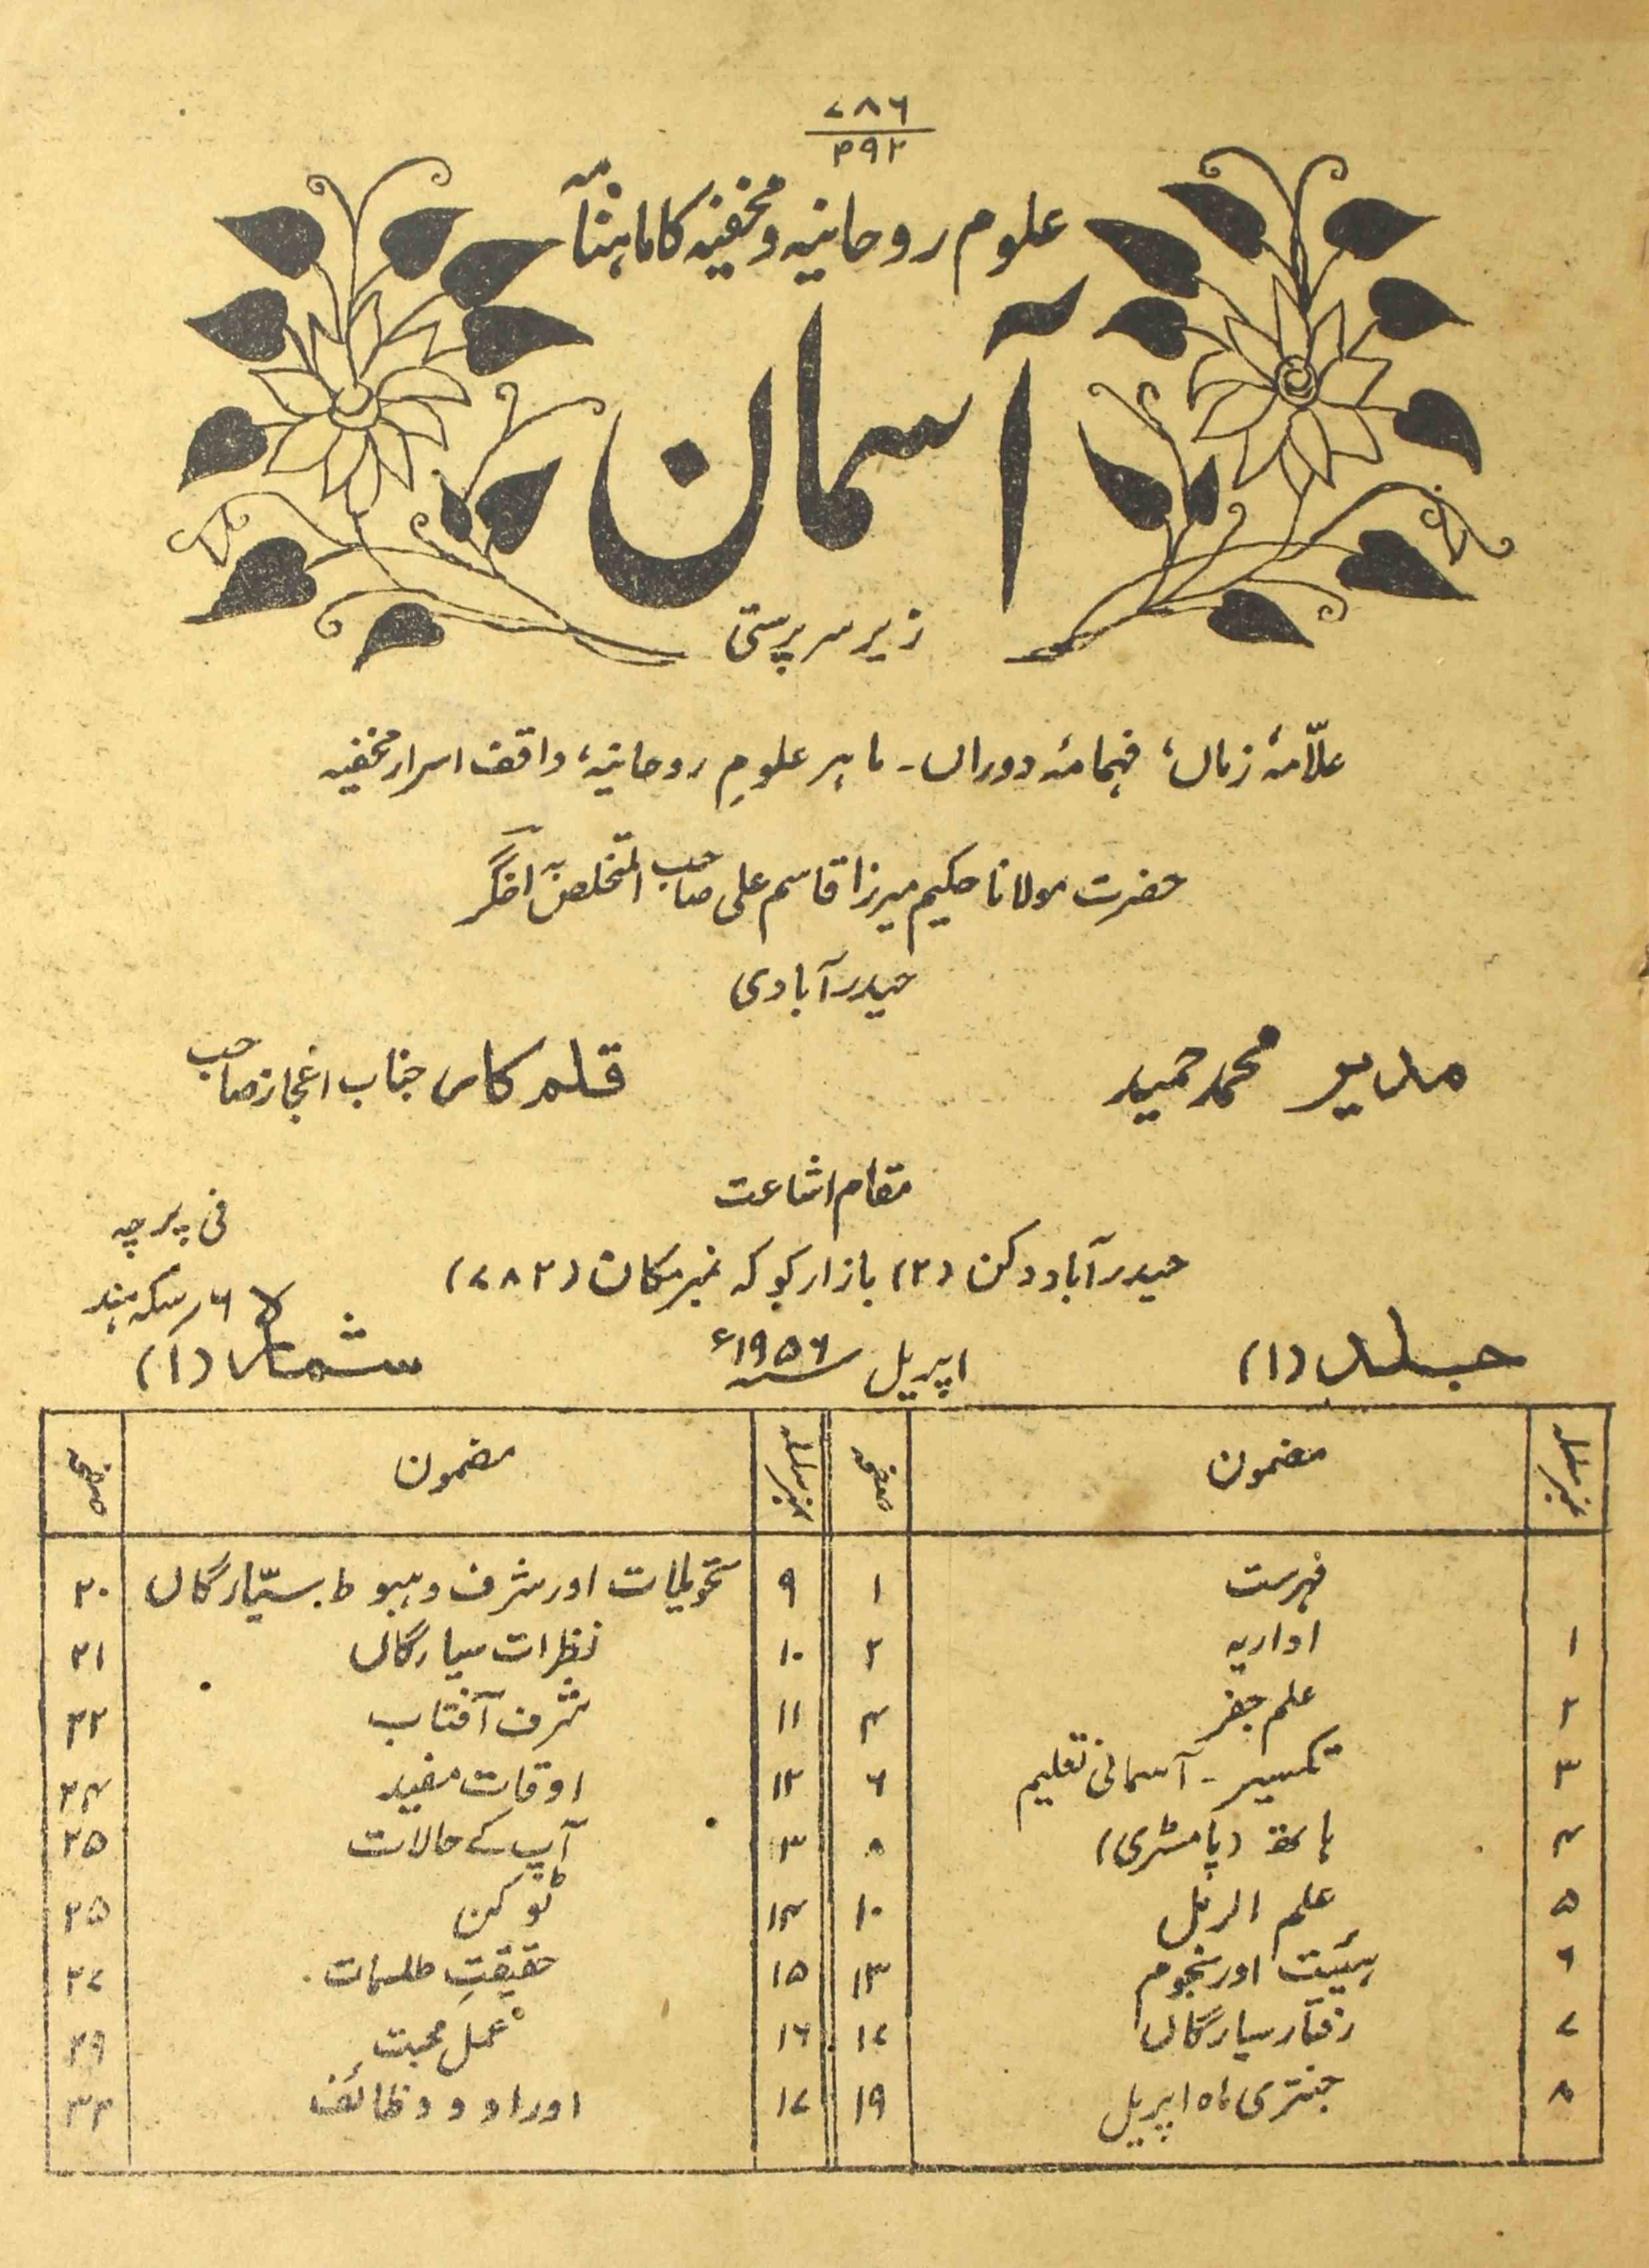 ۷۸۶
۳۹۲
علوم روحانیہ و مخفیہ کا ماہنامہ
آسمان
زیر سرپرستی
علّامۂ زماں، فہامۂ دوراں۔ ماہر علومِ روحانیہ، واقف اسرار مخفیہ
حضرت مولانا حکیم میرزا قاسم علی صاحب المتخلص بہ اخگر
حیدرآبادی
مدیر محمد حمید
قلمکار جناب اعجاز صاحب
مقام اشاعت
فی پرچہ
حیدرآباد دکن (۲) بازار کوکہ نمبر مکان (۷۸۲)
۶ ر سکہ ہند
جلد (۱)
اپریل ۱۹۵۶ء
شمارہ (۱)
نمبر سلسلہ مضمون صفحہ نمبر سلسلہ مضمون صفحہ
فہرست ۱ ۹ تحویلات اور شرف و ہبوط سیّارگاں ۲۰
۱ اداریہ ۲ ۱۰ نظرات سیارگاں ۲۱
۲ علم جفر ۴ ۱۱ شرف آفتاب ۲۲
۳ تکسیر۔ آسمانی تعلیم ۶ ۱۲ اوقات مفید ۲۴
۴ ہاتھ (پامسٹری) ۸ ۱۳ آپ کے حالات ۲۵
۵ علم الرمل ۱۰ ۱۴ ٹوکن ۲۵
۶ ہیئیت اور نجوم ۱۳ ۱۵ حقیقتِ طلسمات ۲۷
۷ رفتار سیارگاں ۱۷ ۱۶ عمل محبت ۲۹
۸ جنتری ماہ اپریل ۱۹ ۱۷ اوراد و وظائف ۳۲